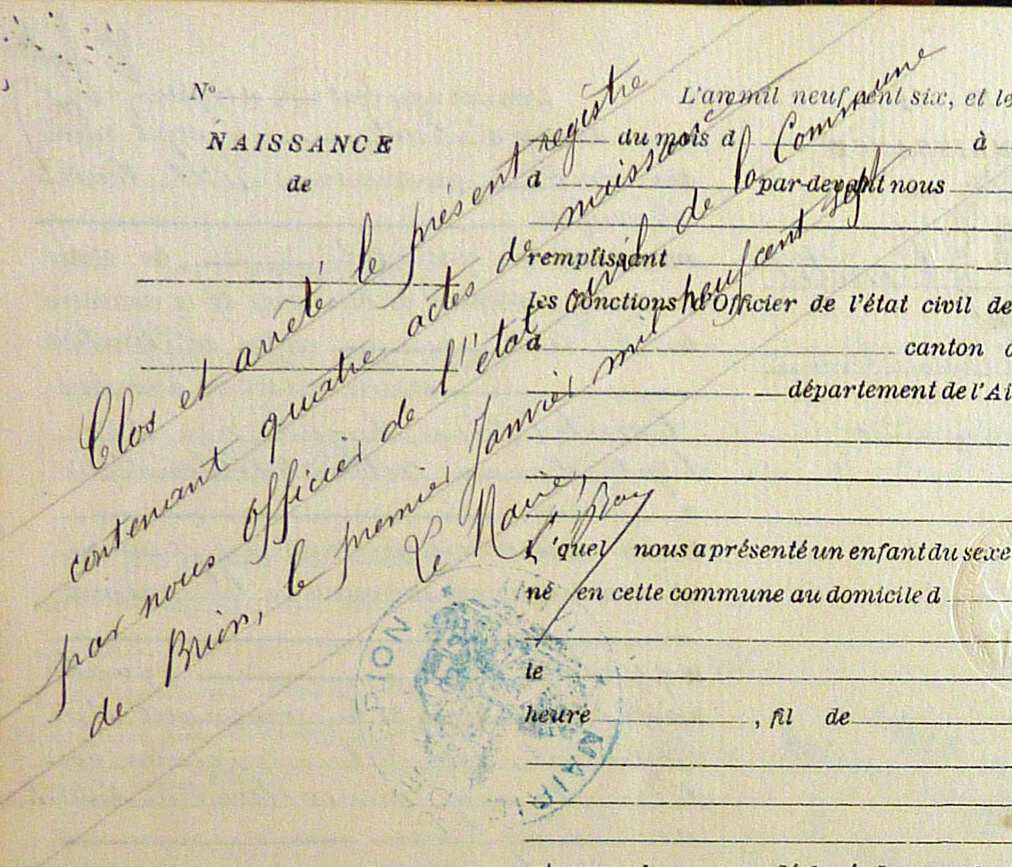 N°
NAISSANCE
de
L'an mil neuf cent six, et le
du mois d à
à
par-devant nous
remplissant
les fonctions d'Officier de l'état civil de
d canton
département de l'Ai
quel nous a présenté un enfant du sexe
né en cette commune au domicile d
le
heure , fil de
Clos et arrêté le présent registre
contenant quatre actes de naissance
par nous officier de l'état civil de la Commune
de Brion, le premier Janvier mil neuf cent sept
Le Maire,
BRION
MAIRIE